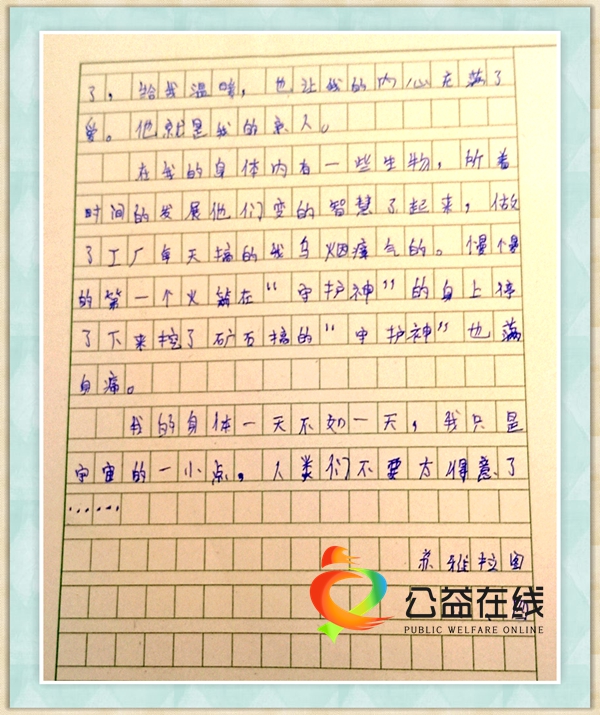 了，给我温暖，也让我的内心充满了
爱。他就是我的亲人。
在我的身体内有一些生物，所着
时间的发展他们变的智慧了起来，做
了工厂每天搞的我乌烟瘴气的。慢慢
的第一个火箭在“守护神”的身上停
了下来挖了矿石搞的“守护神”也满
身痛。
我的身体一天不如一天，我只是
宇宙的一小点，人类们不要方得意了
……
苏雅拉图
公益在线
PUBLIC WELFARE ONLINE